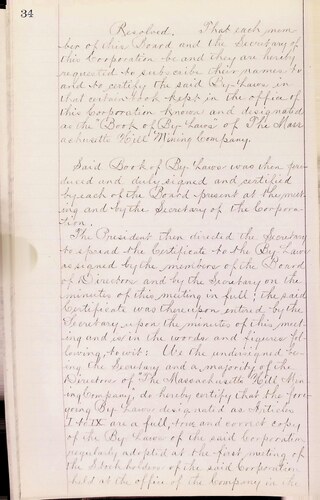 34
Resolved. That each mem-
ber of this Board and the Secretary of
this Corporation be and they are hereby
requested to subscribe their names to
and to certify the said By-Laws in
that certain book kept in the office of
this Corporation known and designated
as the "Book of By-Laws" of The Mass-
achusetts Hill Mining Company.
Said Book of By-Laws was then pro-
duced and duly signed and certified
by each of the Board present at the meet-
ing and by the Secretary of the Corpora-
tion.
The President then directed the Secretary
to spread the Certificate to the By-Laws
as signed by the members of the Board
of Directors and by the Secretary on the
minutes of this meeting in full; the said
Certificate was thereupon entered by the
Secretary upon the minutes of this meet-
ing and is in the words and figures fol-
lowing, to wit: We the undersigned be-
ing the Secretary and a majority of the
Directors of "The Massachusetts Hill Min-
ing Company, do hereby certify that the fore-
going By-Laws designated as Articles
I to IX are a full, true and correct copy
of the By-Laws of the said Corporation
regularly adopted at the first meeting of
the Stockholders of the said Corporation
held at the office of the Company in the